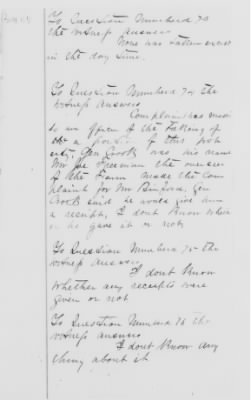 To Question Numberd 73
the witness answers
None was taken except
in the day time.
To Question Numberd 74 the
witness answers
Complaint was made
to an officer of the taking of
a portion of this prop
erty. Gen Crook was his name
Mr Joe Freeman the overseer
of the Farm made the Com
plaint for Mr Binford, Gen
Crook said he would give him
a receipt, I dont Know wheth
er he gave it or not.
To Question Numberd 75 the
witness answers
I dont Know
whether any receipts were
given or not
To Question Numberd 76 the
witness answers
I dont Know any
thing about it